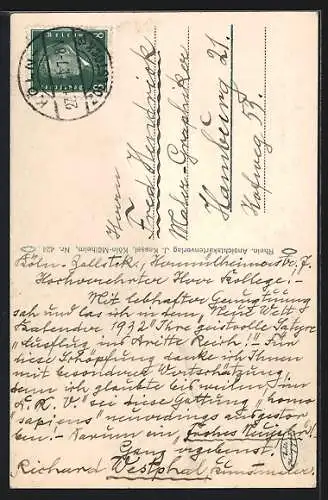 Herrn
Fred Hendriok
Maler-Graphiker
Hamburg 21.
Hofweg 53.
Rhein. Ansichtskartenverlag J. Knussel, Köln-Mülheim. Nr. 424
Köln-Zollstock, Hönninger
Hochverehrter Herr Kollege,-
Mit lebhafter Genugtuung
sah und las ich in dem "Neue Welt
Kalender 1932" Ihre geistvolle Satyre
"Ausflug ins dritte Reich!" - Für
diese Schöpfung danke ich Ihnen
mit besonderer Wertschätzung,
denn ich glaubte bisweilen im
"K.K.V." sei diese Gattung "homo
sapiens" neuerdings ausgestor-
ben.- Darum ein "Frohes Neujahr".
Ganz ergebenst!
Richard Westphal, Kunstmaler.